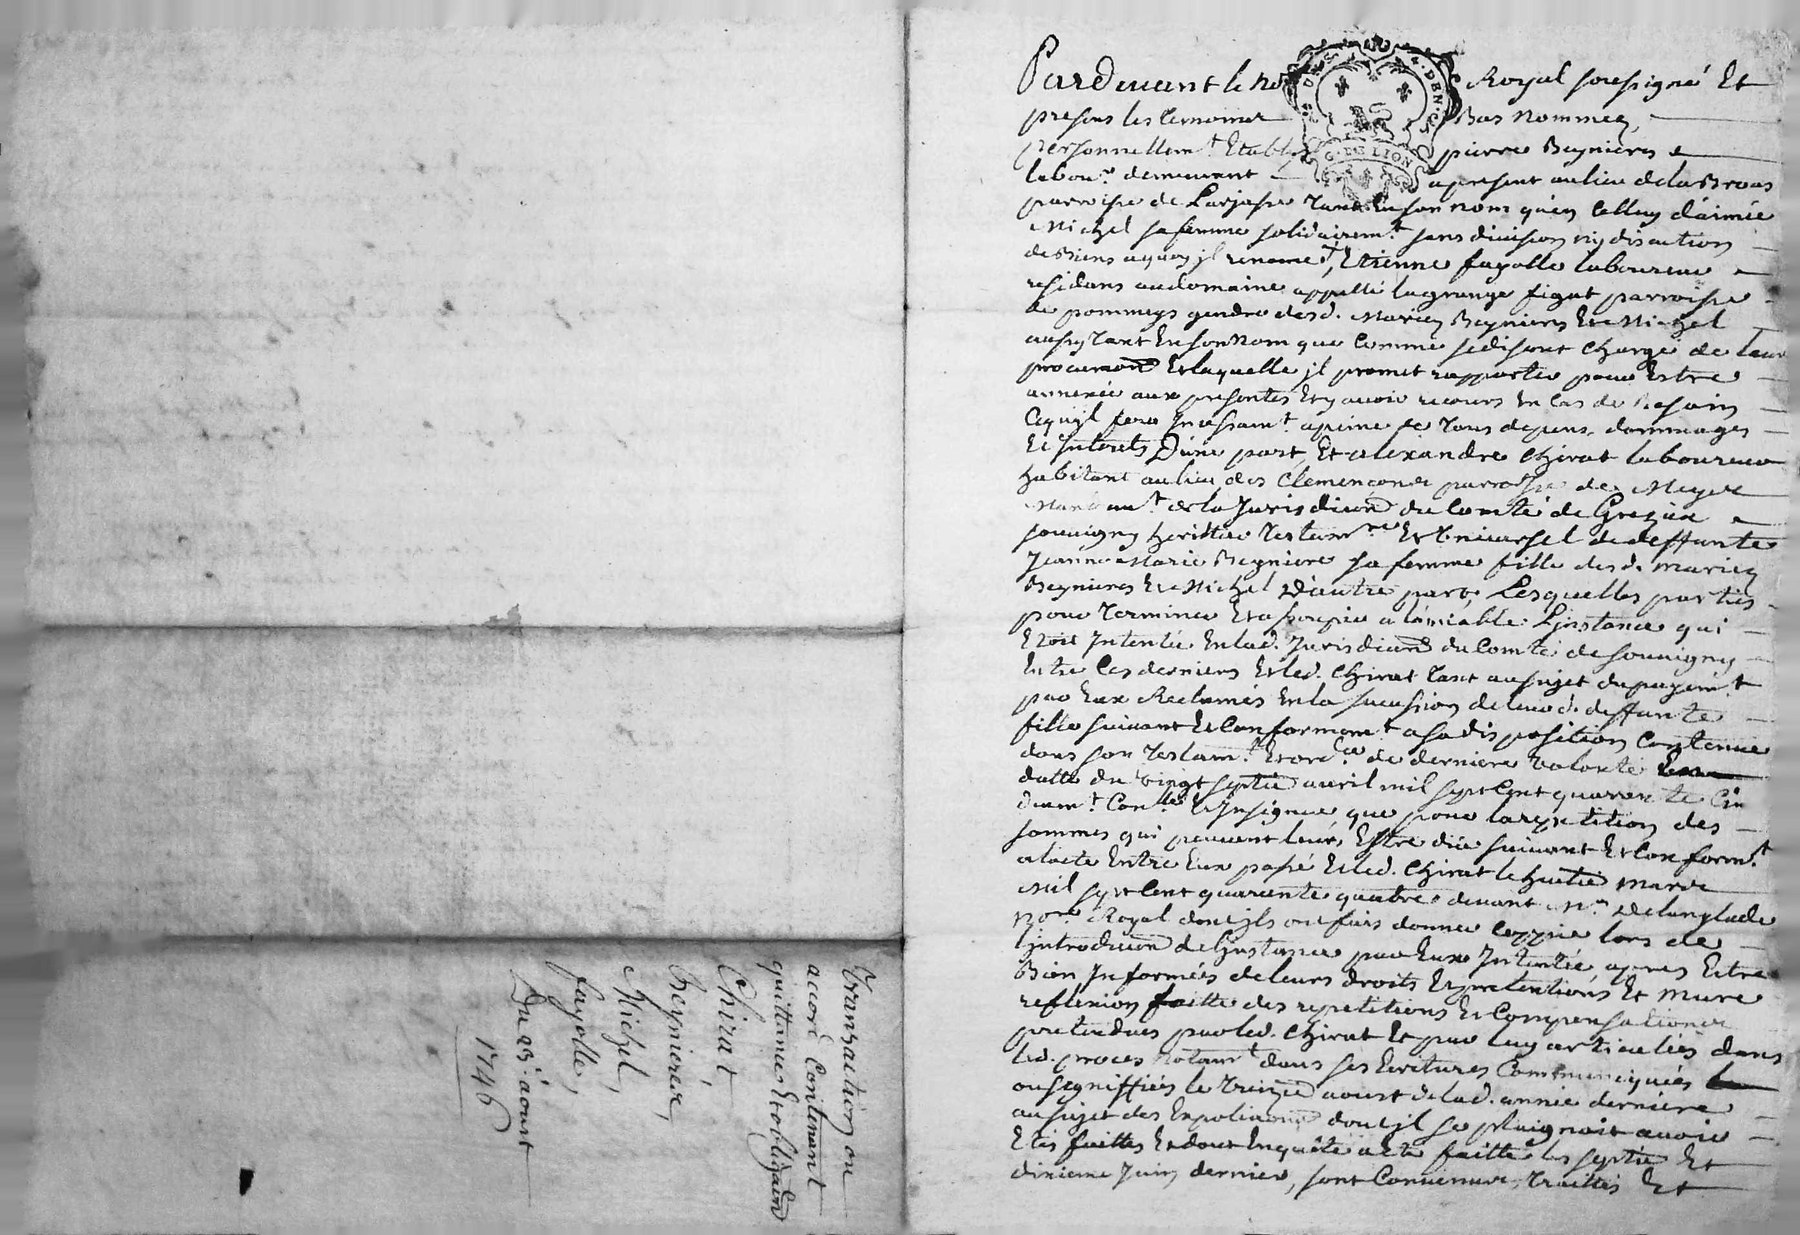 Transaction ou
accord Contenant
quittances et obligaõn
Chirat,
Beynieres,
Michel,
fayolle,
Du 23 aoust
1746
Pardevant le no Royal soussigné Et
presens les temoins Bas nommez,
personnellemt. Etablis pierre Beynieres
labour. demeurant apresent au lieu de la Brouas
parroisse de Larjasse tant En son nom qu'en Celluy d'aimée
Michel sa femme solidairemt. sans division ny discution
de Biens aquoy jl renonce, Etienne fayolle laboureur
residans au domaine appellé lagrange figat parroisse
de pommeys gendre desd. Mariez Beynieres Et Michel
aussy tant En son nom que Comme se disant Chargé de leur
procuraõn Et laquelle jl promet rapporter pour Estre
annexée aux presentes Et y avoir recours En Cas de Besoin
Ce qu'jl fera Incessamt. apeine de tous depens, dommages
Et Interets D'une part, Et alexandre Chirat laboureur
habitant au lieu des Clemençons parroisse de Meys
de la Jurisdicõn du Comté de
souvigny heritier testamre. Et Universel de deffunte
Jeanne Marie Beyniere sa femme fille desd. mariez
Beynieres Et Michel D'autre part. Lesquelles parties
pour terminer Et assoupir a l'amiable L'jnstance qui
Etoit Intentée En lad. Jurisdicõn du Comté de souvigny
Entre Ces derniers Et led. Chirat tant au sujet du payemt.
par Eux Reclamés En la sucession de leurd. deffunte
fille suivant Et Conformemt. a sa disposition Contenue
dans son testamt. Et ordce. de derniere volonté
datte du vingt septie avril mil sept Cent quarente Cin
duemt. Conllé Et Insignué que pour la repetition des
sommes qui peuvent leur Estre düe suivant Et Conformt.
alacte Entre Eux passé Et led. Chirat le huitie mars
Mil sept Cent quarente quatre devant Me. Delanglade
nore. Royal dont jls ont fait donner Coppie lors de
l'introducõn de l'jnstance par Eux Intentée, apres Estre
Bien Informées de leurs droits Et pretentions Et mure
reflexion faitte des repetitions Et Compensations
pretendues par led. Chirat Et par luy articulées dans
led. proces notamt. dans ses Ecritures Communiquées
ou signiffiées le treizie aoust de lad. année derniere
au sujet des Expoliaõns dont jl se plaignoit avoir
Etés faittes Et dont Enquête a Eté faitte les septie Et
dixieme Juin dernier, sont Convenues, traittés Et